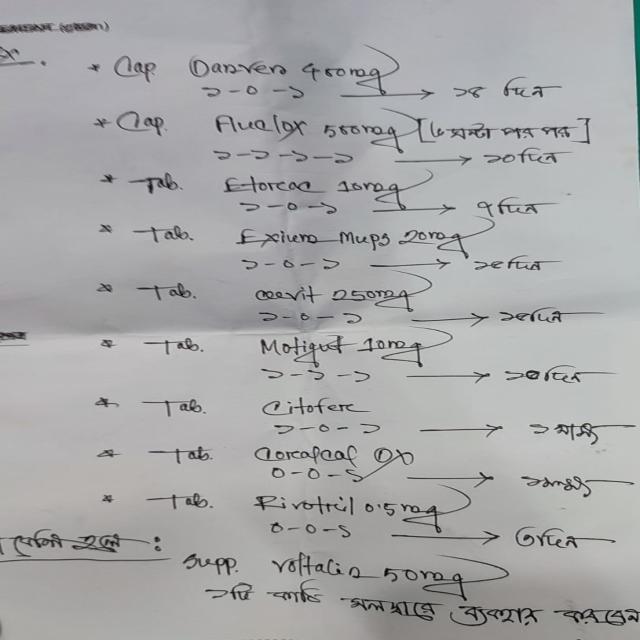 * Cap. Danvers 400mg
১-০-১ → ১৪ দিন
* Cap. Fluclox 500mg [৬ ঘন্টা পর পর]
১-১-১-১ → ১০দিন
* Tab. Etorcac 10mg
১-০-১ → ৭দিন
* Tab. Exium Mups 20mg
১-০-১ → ১৫দিন
* Tab. ceevit 250mg
১-০-১ → ১৫দিন
* Tab. Motigut 10mg
১-১-১ → ১০দিন
* Tab. Citoferc
১-০-১ → ১ মাস
* Tab. Coralcal DX
০-০-১ → ১মাস
* Tab. Rivotril 0.5mg
০-০-১ → ৩দিন
বেশি হলে :
Supp. Voltalin 50mg
১টি কাঠি মলদ্বারে ব্যবহার করবেন